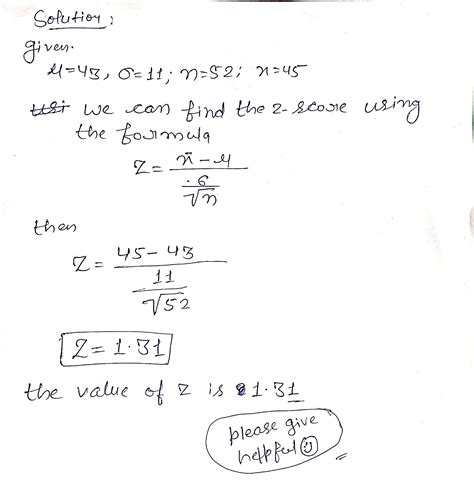 Solution:
given.
μ=43, σ=11; n=52; x=45
we can find the z-score using
the formula
Z = x̄ - μ
σ
√n
then
Z = 45 - 43
11
√52
Z = 1.31
the value of z is 1.31
please give
helpful